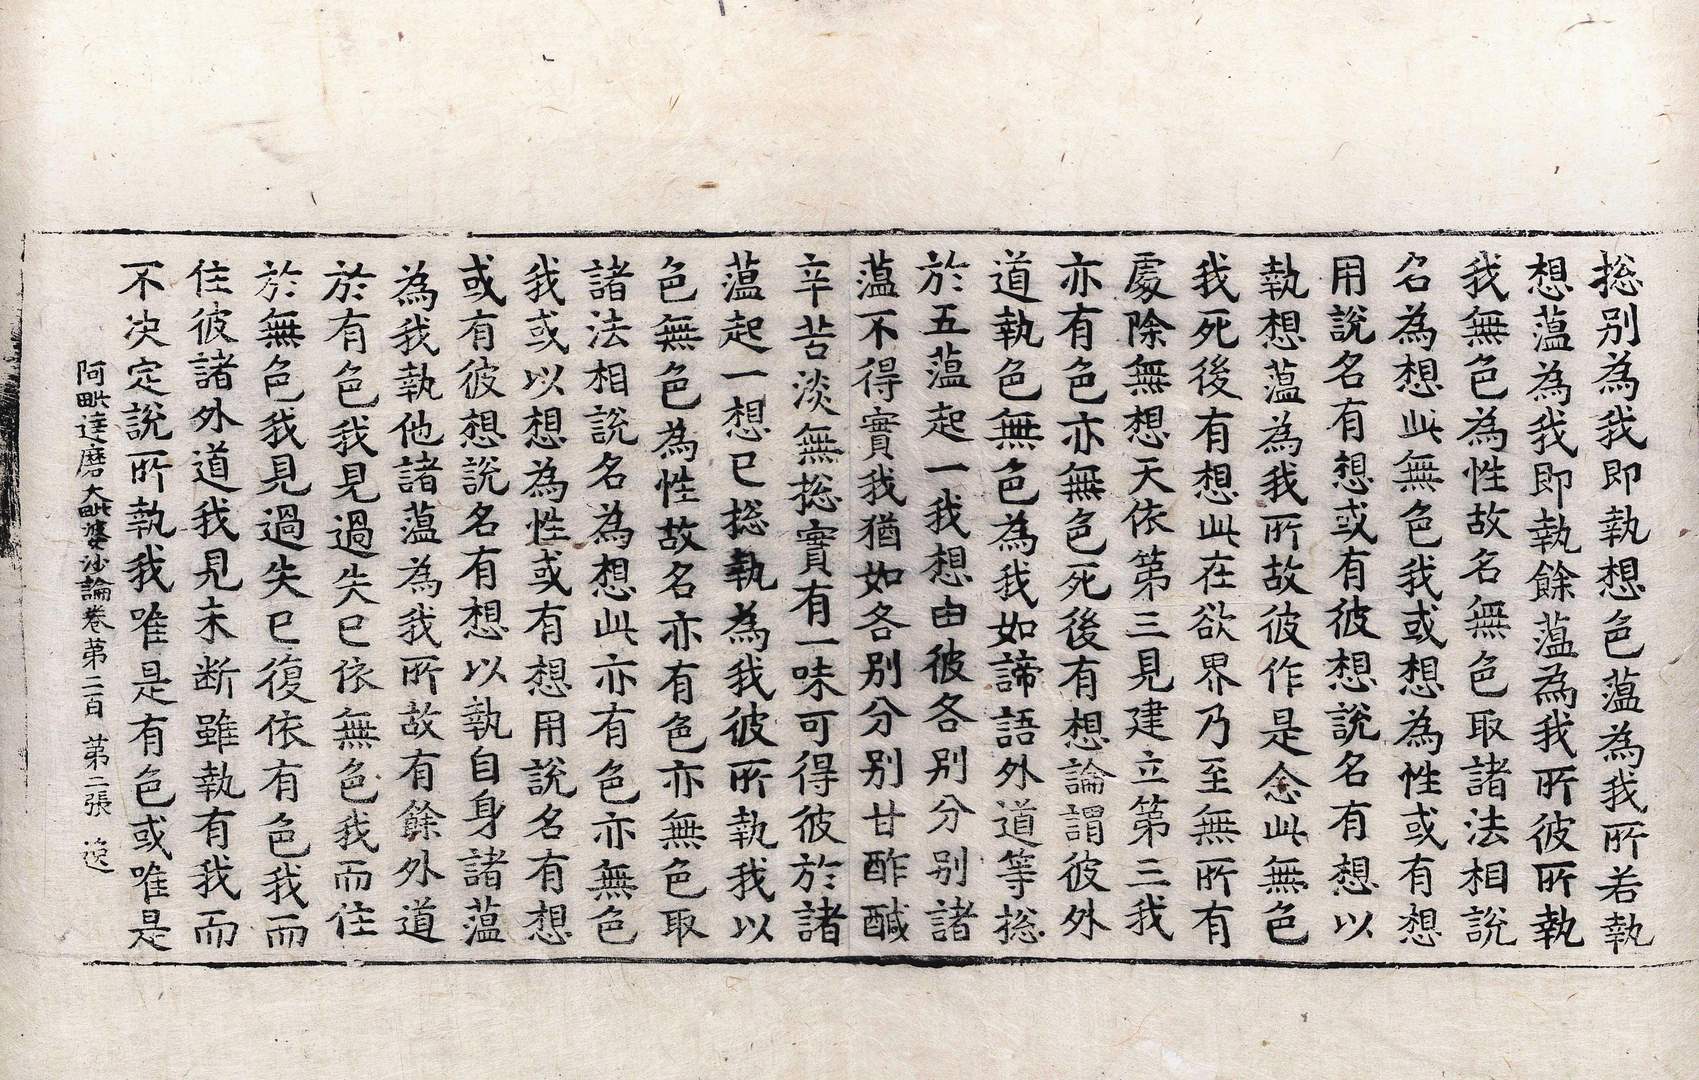 捴别為我即執想色蕰為我所若執
想蕰為我即執餘蕰為我所彼所執
我無色為性故名無色取諸法相說
名為想此無色我或想為性或有想
用說名有想或有彼想說名有想以
執想蕰為我所故彼作是念此無色
我死後有想此在欲界乃至無所有
處除無想天依第三見建立第三我
亦有色亦無色死後有想論謂彼外
道執色無色為我如諦語外道等捴
於五蕰起一我想由彼各別分别諸
蕰不得實我猶如各别分别甘酢醎
辛苦淡無捴實有一味可得彼於諸
蕰起一想已捴執為我彼所執我以
色無色為性故名亦有色亦無色取
諸法相說名為想此亦有色亦無色
我或以想為性或有想用說名有想
或有彼想說名有想以執自身諸蕰
為我執他諸蕰為我所故有餘外道
於有色我見過失已依無色我而住
於無色我見過失已復依有色我而
住彼諸外道我見未断雖執有我而
不决定說所執我唯是有色或唯是
阿毗達磨大毗婆沙論卷第二百 第二張 逸